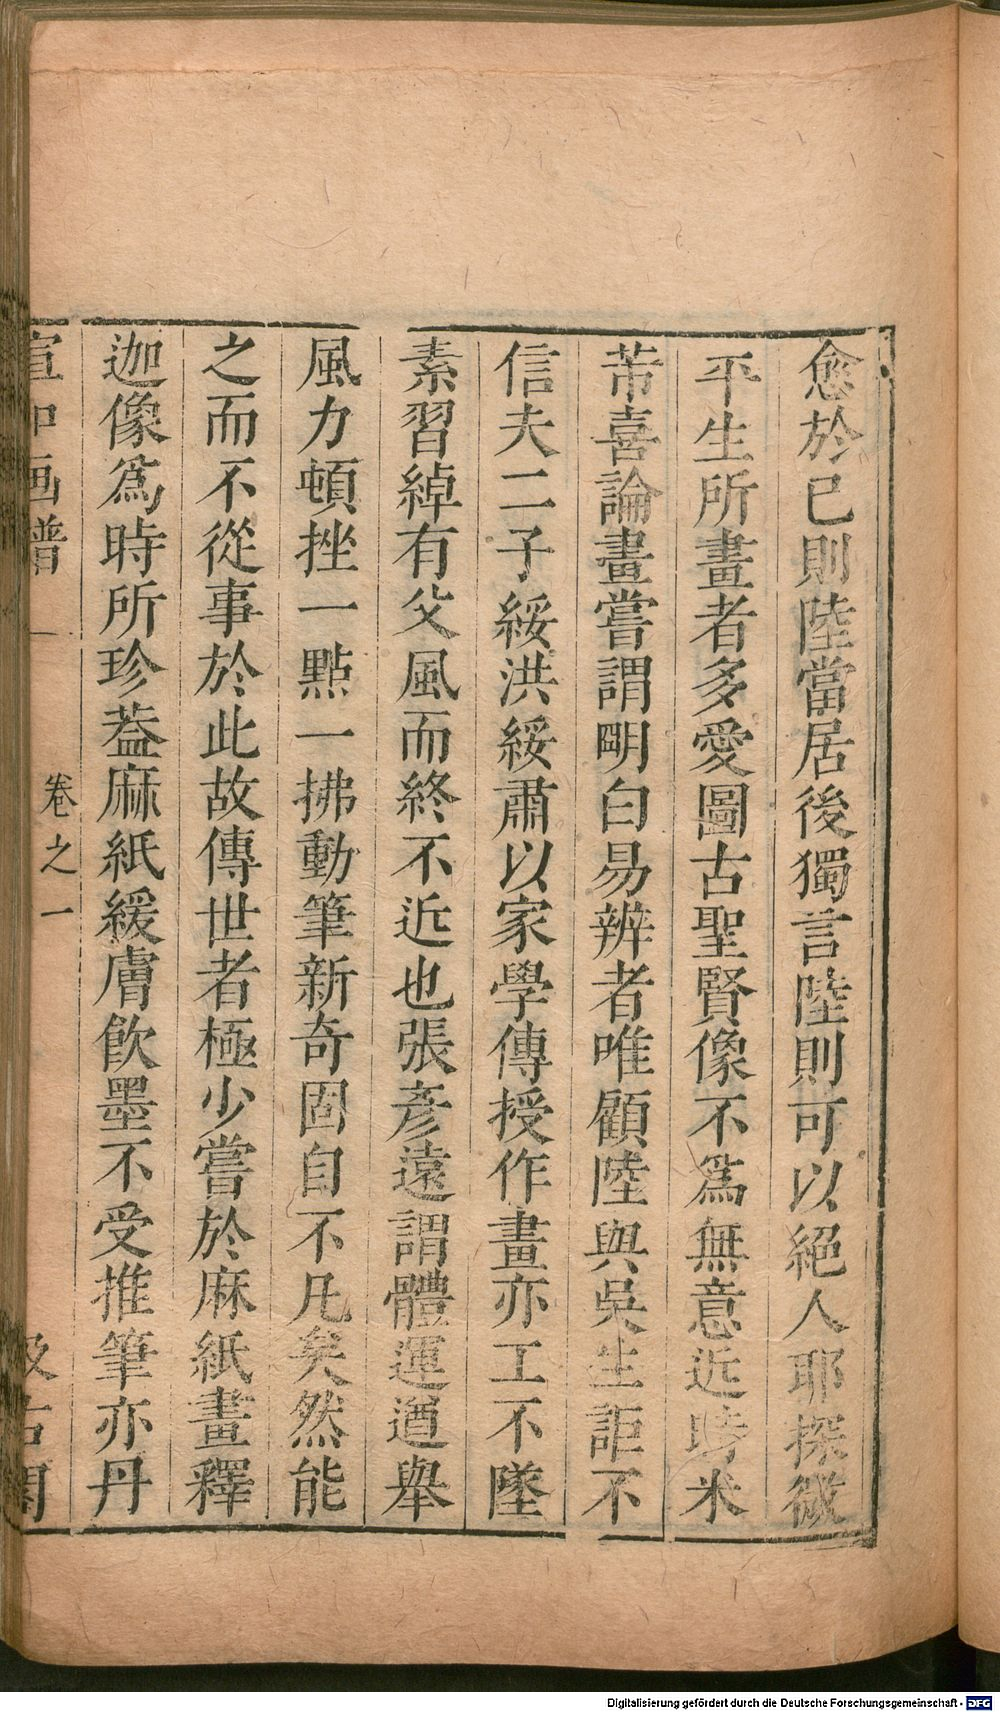 愈於已則陸當居後獨言陸則可以絕人耶探微
平生所畫者多愛圖古聖賢像不爲無意近時米
芾喜論畫嘗謂明白易辨者唯顧陸與吳生詎不
信夫二子綏洪綏肅以家學傳授作畫亦工不墜
素習綽有父風而終不近也張彥遠謂體運遒舉
風力頓挫一點一拂動筆新奇固自不凡矣然能
之而不從事於此故傳世者極少嘗於麻紙畫釋
迦像爲時所珍葢麻紙緩膚飲墨不受推筆亦丹
宣和画譜 卷之一 汲古閣
Digitalisierung gefördert durch die Deutsche Forschungsgemeinschaft - DFG